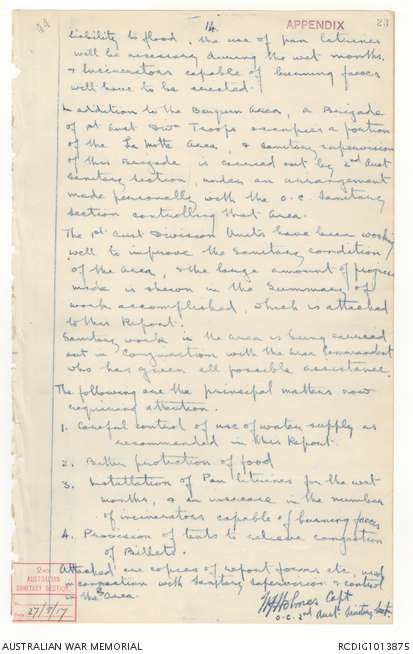 14.
APPENDIX
liability to flood, the use of pan latrines
will be necessary during the wet months.
& Incinerators capable of burning faeces
will have to be erected.
In addition to the Area, a Brigade
of 1st Aust Divn Troops occupies a portion
of the La Motte Area, & Sanitary supervision
of this Brigade is carried out by 2nd Aust
Sanitary Section, under an arrangement
made personally with the O.C. Sanitary
Section controlling that area.
The 1st Aust Division Units have been working
well to improve the sanitary condition
of the area, & the large amount of progress
made is shewn in the Summary of
work accomplished, which is attached
to this Report.
Sanitary work in the area is being carried
out in conjunction with the Area Commandant
who has given all possible assistance.
The following are the principal matters now
requiring attention.
1. Careful control of use of water supply as
recommended in this Report.
2. Better protection of food
3. Installation of Pan latrines for the wet
months, & an increase in the number
of incinerators capable of burning faeces
4. Provision of tents to relieve congestion
of Billets.
Attached are copies of report forms etc, used
in conjunction with sanitary supervision & control
in the area.
Holmes Capt
O.C. 2nd Aust. Sanitary Sect.
2ND
AUSTRALIAN
SANITARY SECTION
27/7/17
AUSTRALIAN WAR MEMORIAL
RCDIG1013875